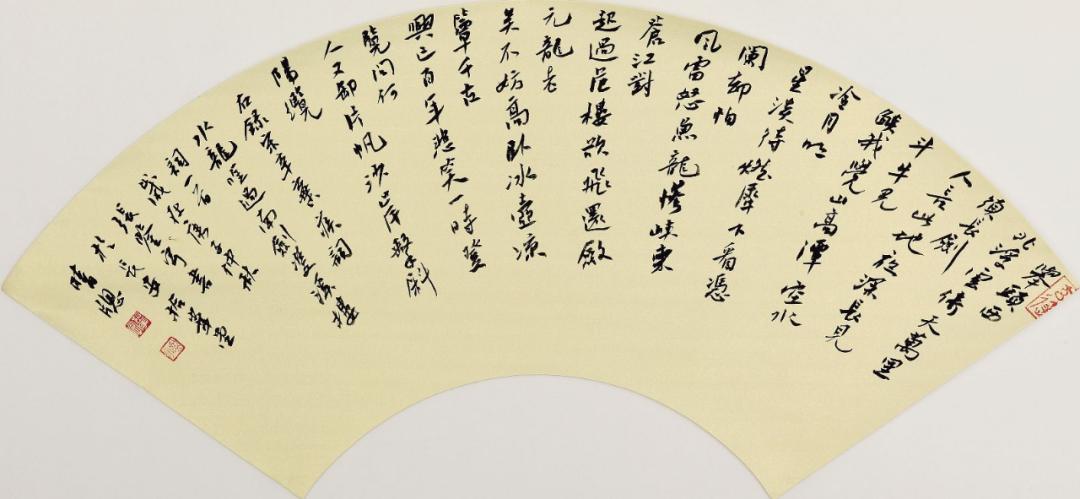 舉頭西
北浮雲倚天萬里
須長劍
人言此地夜深長見
斗牛光
焰我覺山高潭空水
冷月明
星淡待燃犀下看憑
闌却怕
風雷怒魚龍慘峽束
蒼江對
起過危樓欲飛還斂
元龍老
矣不妨高臥冰壺涼
簟千古
興亡百年悲笑一時登
覽問何
人又卸片帆沙岸繫斜
陽纜
右錄宋辛棄疾詞
水龍吟過南劍雙溪樓
詞一首 子仲秋
歲
張 書
於長安
晴窗